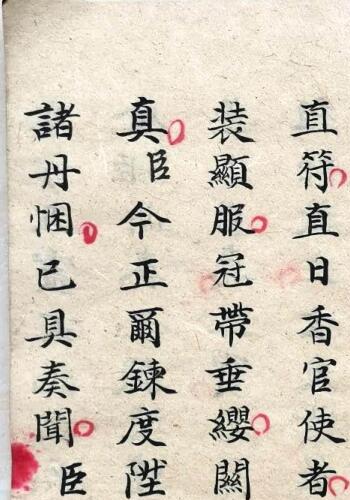 直符直日香官使者
装顯服冠帶垂纓關
真臣今正爾鍊度陞
諸丹悃已具奏聞臣